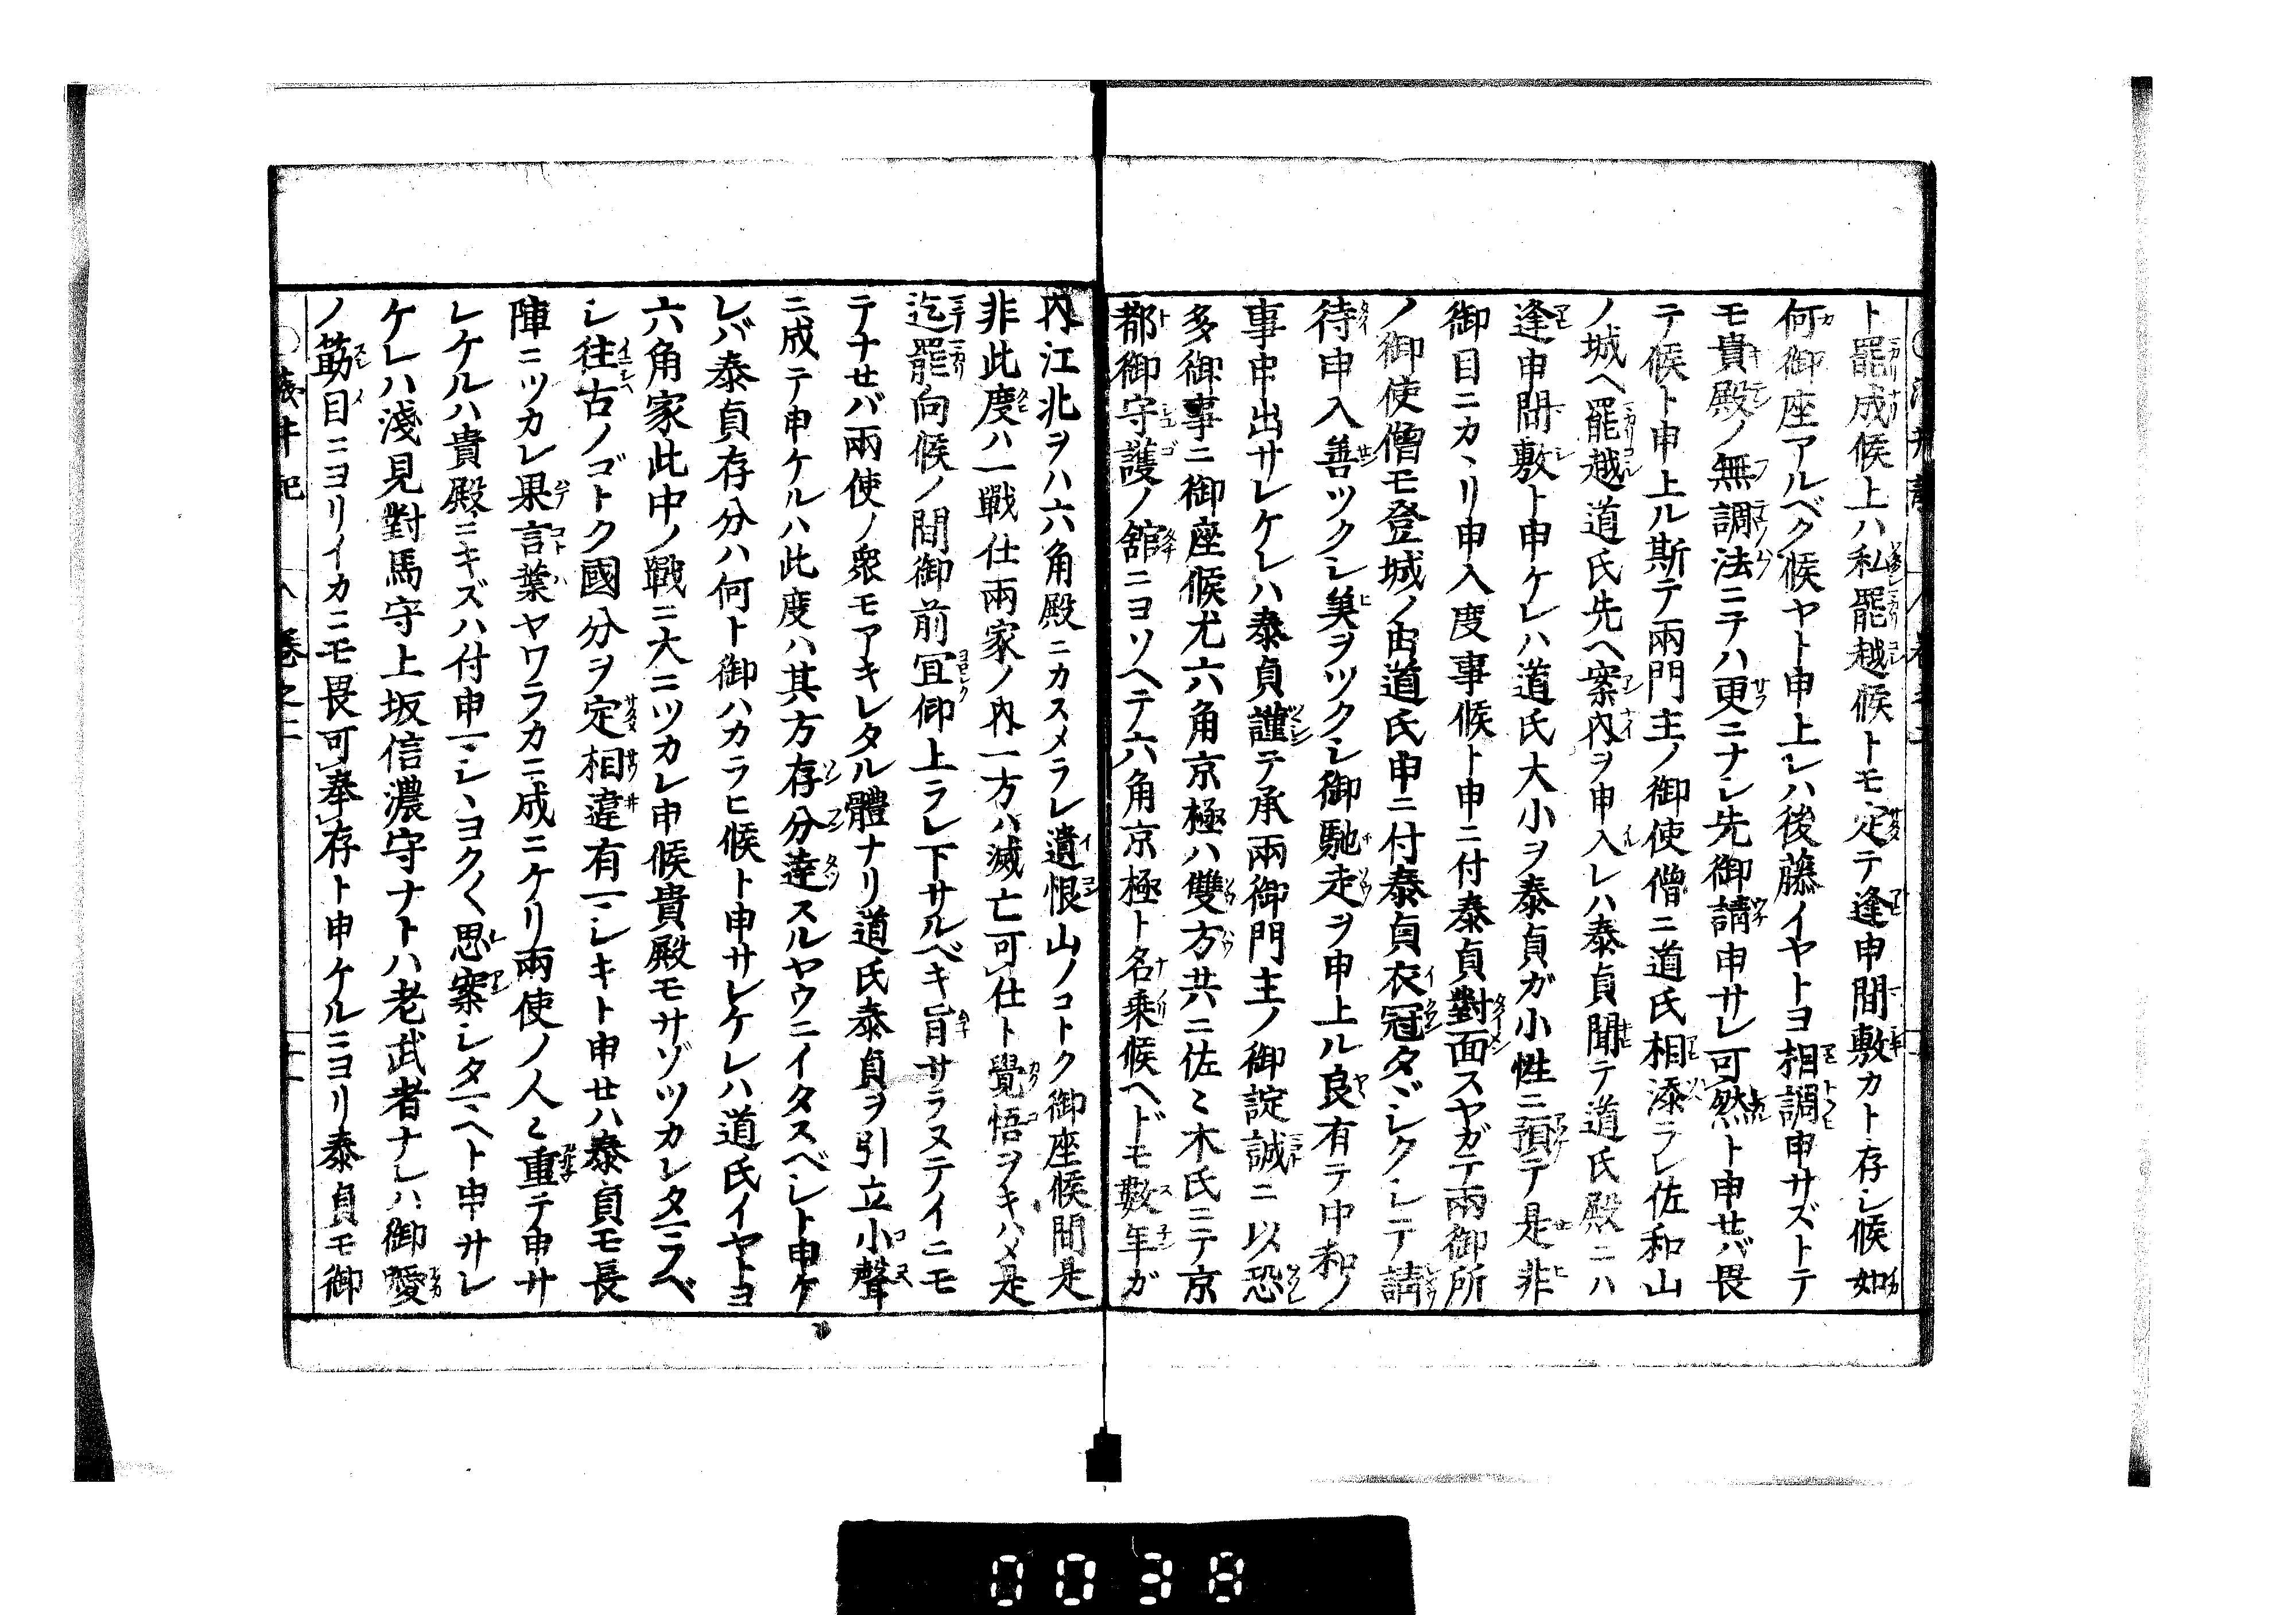 ト罷成候上ハ私罷越候トモ定テ逢申間敷カト存シ候如
何御座アルベク候ヤト申上レハ後藤イヤトヨ相調申サズトテ
モ貴殿ノ無調法ニテハ更ニナシ先御請申サレ可然ト申せバ畏
テ候ト申上ル斯テ兩門主ノ御使僧ニ道氏相添ラレ佐和山
ノ城ヘ罷越道氏先ヘ案内ヲ申入レハ泰貞聞テ道氏殿ニハ
逢申間敷ト申ケレハ道氏大小ヲ泰貞ガ小性ニ預テ是非
御目ニカヽリ申入度事候ト申ニ付泰貞對面スヤガテ兩御所
ノ御使僧モ登城ノ由道氏申ニ付泰貞衣冠タヾシクシテ請
待申入善ツクシ美ヲツクシ御馳走ヲ申上ル良有テ中和ノ
事申出サレケレハ泰貞謹テ承兩御門主ノ御諚誠ニ以恐
多御事ニ御座候尤六角京極ハ雙方共ニ佐々木氏ニテ京
都御守護ノ舘ニヨソヘテ六角京極ト名乗候ヘドモ數年ガ
内江北ヲハ六角殿ニカスメラレ遺恨山ノコトク御座候間是
非此度ハ一戰仕兩家ノ内一方ハ滅亡可仕ト覺悟ヲキハメ是
迄罷向候ノ間御前冝仰上ラレ下サルベキ旨サラヌテイニモ
テナせバ兩使ノ衆モアキレタル體ナリ道氏泰貞ヲ引立小聲
ニ成テ申ケルハ此度ハ其方存分達スルヤウニイタスベシト申ケ
レバ泰貞存分ハ何ト御ハカラヒ候ト申サレケレハ道氏イヤトヨ
六角家此中ノ戰ニ大ニツカレ申候貴殿モサゾツカレタラヘ
シ往古ノゴトク國分ヲ定相違有シキト申せハ泰貞モ長
陣ニツカレ果言葉ヤワラカニ成ニケリ兩使ノ人々重テ申サ
レケルハ貴殿ニキズハ付申シヽヨク〱思案シタヘト申サレ
ケレハ淺見對馬守上坂信濃守ナトハ老武者ナレハ御愛
ノ筋目ニヨリイカニモ畏可奉存ト申ケルニヨリ泰貞モ御
淺井記 卷之二 十一
0038